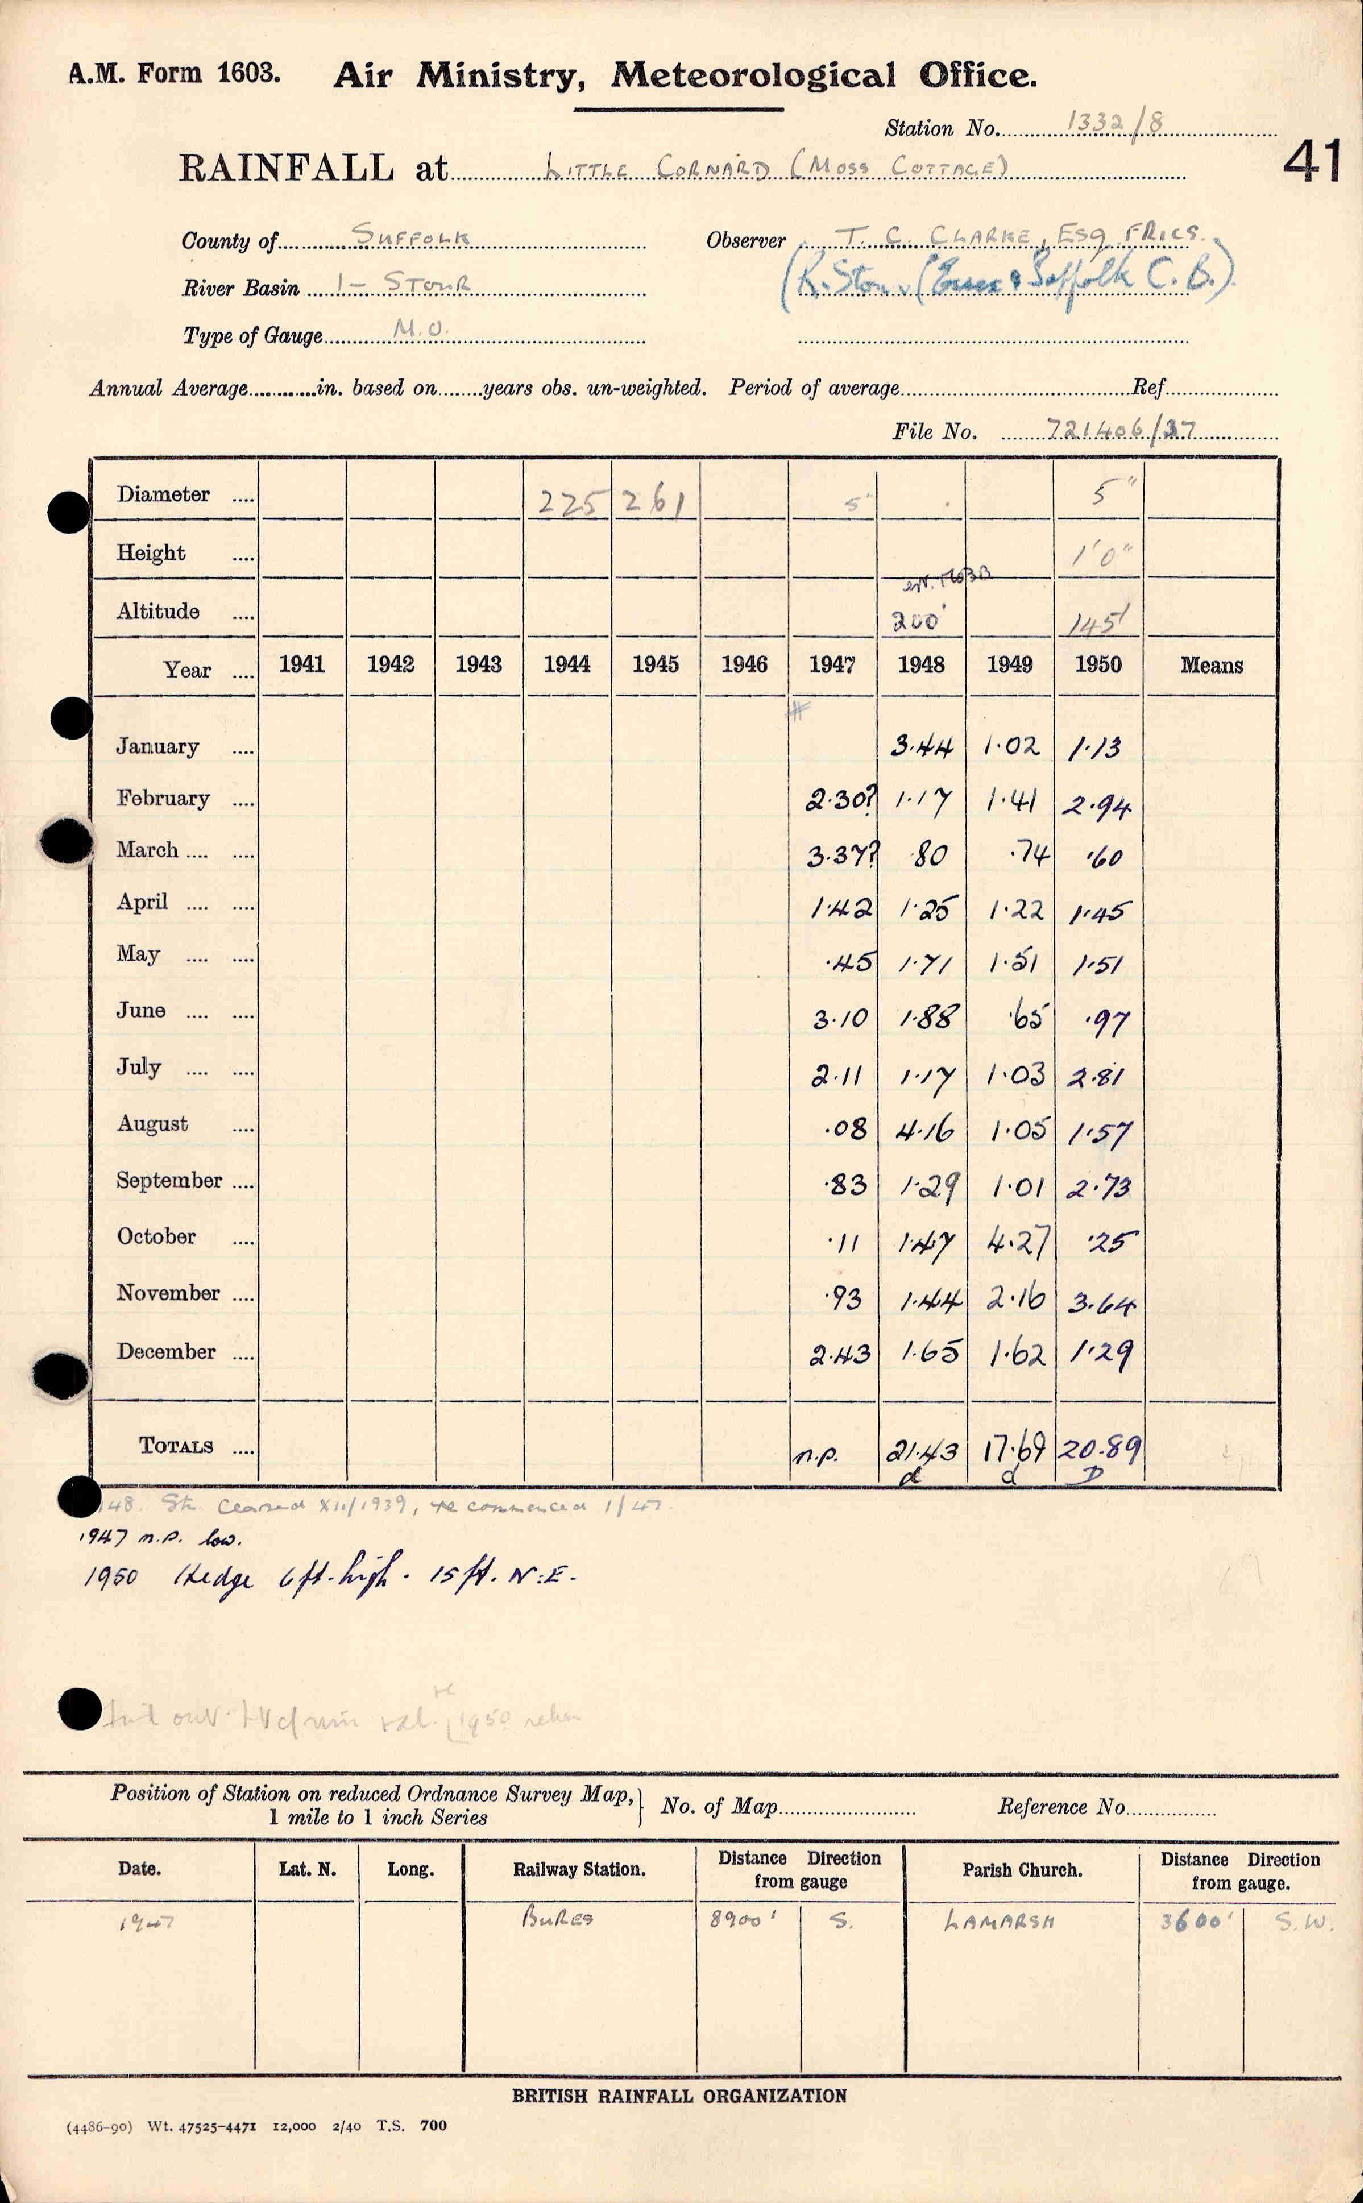 A.M. Form 1603. Air Ministry, Meteorological Office.
Station No. 1332/8
41
RAINFALL at LITTLE CORNARD (MOSS COTTAGE)
County of SUFFOLK Observer T. C. CLARKE, ESQ FRICS.
River Basin 1- STOUR (R. Stour (Essex & Suffolk C. B.)
Type of Gauge M.O.
Annual Average in. based on years obs. un-weighted. Period of average Ref
File No. 721406/37
Diameter 225 261 5" 5"
Height 1'0"
Altitude 200' 145'
Year 1941 1942 1943 1944 1945 1946 1947 1948 1949 1950 Means
January 3.44 1.02 1.13
February 2.30? 1.17 1.41 2.94
March 3.37? .80 .74 .60
April 1.42 1.25 1.22 1.45
May .45 1.71 1.51 1.51
June 3.10 1.88 .65 .97
July 2.11 1.17 1.03 2.81
August .08 4.16 1.05 1.57
September .83 1.29 1.01 2.73
October .11 1.47 4.27 .25
November .93 1.44 2.16 3.64
December 2.43 1.65 1.62 1.29
TOTALS n.p. 21.43 17.69 20.89
d d D
48. Stn. Ceased XII/1939, re commenced 1/47.
1947 n.p. low.
1950 Hedge 6ft. high. 15ft. N.E.
1950
Position of Station on reduced Ordnance Survey Map, 1 mile to 1 inch Series } No. of Map Reference No.
Date. Lat. N. Long. Railway Station. Distance Direction from gauge Parish Church. Distance Direction from gauge.
1947 BURES 8900' S. LAMARSH 3600' S.W.
BRITISH RAINFALL ORGANIZATION
(4486-90) Wt. 47525-4471 12,000 2/40 T.S. 700